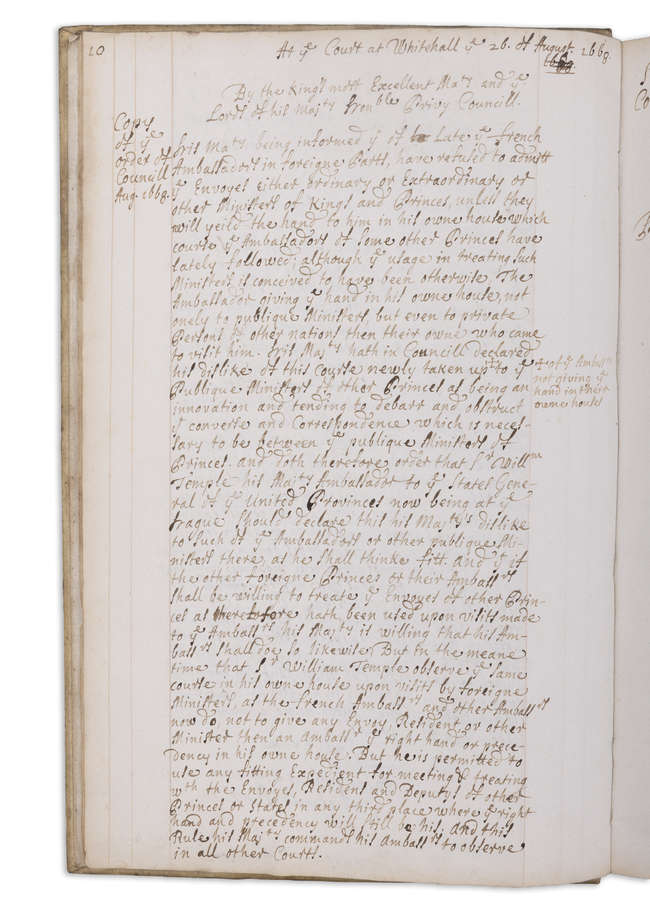 10
At yᵉ Court at Whitehall yᵉ 26. of August 1668.
By the Kings most Excellent Maᵗʸ and yᵉ
Lords of his Majᵗʸˢ Honᵇˡᵉ Privy Councill.
Copy
of yᵉ
order of
Councill
Aug. 1668.
His Maᵗʸ being informed yᵗ of Late yᵉ French
Ambassadors in foreigne Parts, have refused to admitt
yᵉ Envoyes either ordinary or Extraordinary or
other Ministers of Kings and Princes, unless they
will yeild the hand to him in his owne house which
course yᵉ Ambassadors of some other Princes have
lately followed; although yᵉ usage in treating such
Ministers is conceived to have been otherwise. The
Ambassador giving yᵉ hand in his owne house, not
onely to publique Ministers, but even to private
Persons of other nations then their owne who came
to visit him. His Majᵗʸ hath in Councill declared
his dislike of this course newly taken up to yᵉ
Publique Ministers of other Princes as being an
innovation and tending to debarr and obstruct
yᵉ converse and Correspondence which is neces-
sary to be between yᵉ publique Ministers of
Princes. and doth therefore order that Sʳ Willᵐ
Temple his Majᵗʸˢ Ambassador to yᵉ States Gene-
ral of yᵉ United Provinces now being at yᵉ
Hague should declare this his Majᵗʸˢ dislike
to such of yᵉ Ambassadors or other publique Mi-
nisters there, as he shall thinke fitt. and yᵗ if
the other Foreigne Princes or their Ambassʳˢ
shall be willing to treate yᵉ Envoyes of other Prin-
ces as heretofore hath been used upon visits made
to yᵉ Ambassʳˢ his Majᵗʸ is willing that his Am-
bassʳˢ shall doe so likewise. But in the meane
time that Sʳ William Temple observe yᵉ same
course in his owne house upon visits by foreigne
Ministers, as the French Ambassʳˢ and other Ambassʳˢ
now do, not to give any Envoy, Resident or other
Minister then an Ambassʳ yᵉ right hand or prece-
dency in his owne house. But he is permitted to
use any fitting Expedient for meeting & treating
wᵗʰ the Envoyes, Resident and Deputys of other
Princes or States in any third place where yᵉ right
hand and precedency will still be his; and this
Rule his Majᵗʸ commands his Ambassʳˢ to observe
in all other Courts.
+ of yᵉ Ambassʳˢ
not giving yᵉ
hand in their
owne houses